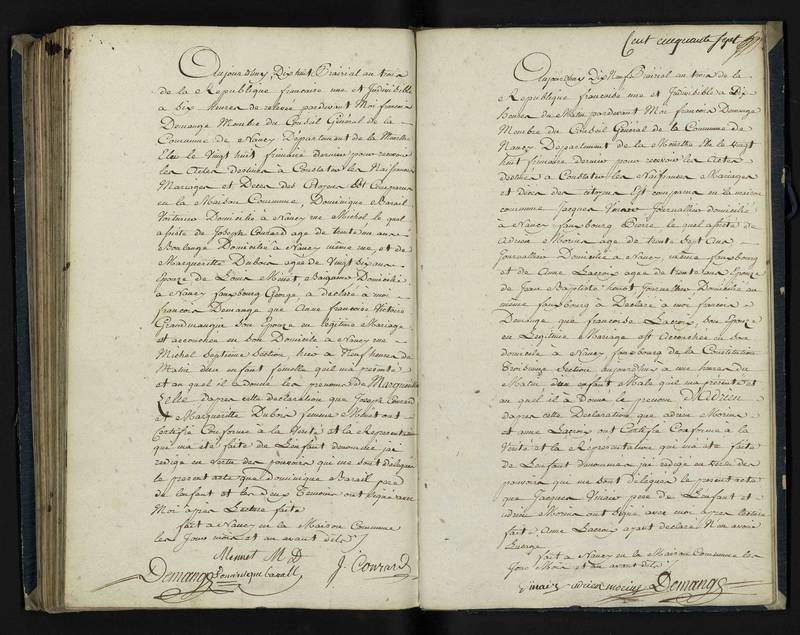 Aujourdhuy Dix huit Prairial an trois
de la République françoise une et Indivisible
a Six heures de relevé pardevant Moi françois
Demange Membre du Conseil Général de la
Commune de Nancy Département de la Meurthe
Elu le Vingt huit frimaire dernier pour recevoir
les Actes destinés a Constater les Naissances
Mariages et Deces des Citoyens Est Comparu
en la Maison Commune, Dominique Barail
Domicilié a Nancy rue Michel le quel
assisté de Joseph Conrard age de trente ans
Boulangé Domicilié a Nancy même rue, et de
Marguerite Dubois agée de Vingt six ans
Epouze de Louis Menet, Domicilié
a Nancy fauxbourg George a déclaré a moi
françois Demange que Anne françoise Victoire
Grandmange Son Epouze en légitime Mariage
est accouchée en Son Domicile a Nancy rue
Michel Septieme Section, hier a Neuf heures du
Matin d'un enfant femelle qu'il m'a présenté
et au quel il a donné les prenoms de Marguerite
d'apres cette declaration que Joseph Conrard
et Marguerite Dubois femme Menet ont
Certifié Conforme a la Verité et la Representation
qui m'a été faite de L'enfant denommé j'ai
redigé en Vertu des pouvoirs qui me sont délégués
le present acte que Dominique Barail pere
de L'enfant et les deux Temoins ont signé avec
Moi apres Lecture faite
fait a Nancy en la Maison Commune
les Jours mois et an avant dits
Mennet M D
Demange Dominique Barail J. Conrard
Cent cinquante Sept
Aujourdhuy Dix Neuf Prairial an trois de la
République françoise une et Indivisible a Dix
heures du Matin pardevant Moi françois Demange
Membre du Conseil Général de la Commune de
Nancy Departement de la Meurthe Elu le Vingt
huit frimaire dernier pour recevoir les Actes
destinés a Constater les Naissances Mariages
et déces des citoyens Est comparu en la maison
commune Jacques Journallier domicilié
a Nancy fauxbourg Pierre, le quel assisté de
Adrien Morin age de trente Sept Ans
Journallier Domicilié a Nancy même fauxbourg
et de Anne Lacroix agée de trente ans Epouze
de Jean Baptiste Journallier Domicilié au
même fauxbourg a Declaré a moi francois
Demange que francoise Lacroix, Son Epouze
en Légitime Mariage est accouchée en Son
domicile a Nancy fauxbourg de la Constitution
Troisieme Section aujourdhuy a une heures du
Matin d'un enfant Male qu'il m'a présenté et
au quel il a Donné le prenom D'Adrien
d'apres cette Declaration que adrien Morin
et anne Lacroix ont Certifié Conforme a la
Verité et la Représentation qui m'a été faite
de L'enfant denommé j'ai redigé en Vertu des
pouvoirs qui me sont délégués le present acte
que Jacques pere de L'enfant et
adrien Morin ont Signé avec moi apres lecture
faite, Anne Lacroix ayant declaré N'en avoir
L'usage
fait a Nancy en la Maison Commune les
Jour Mois et an avant dits
adrien morin Demange